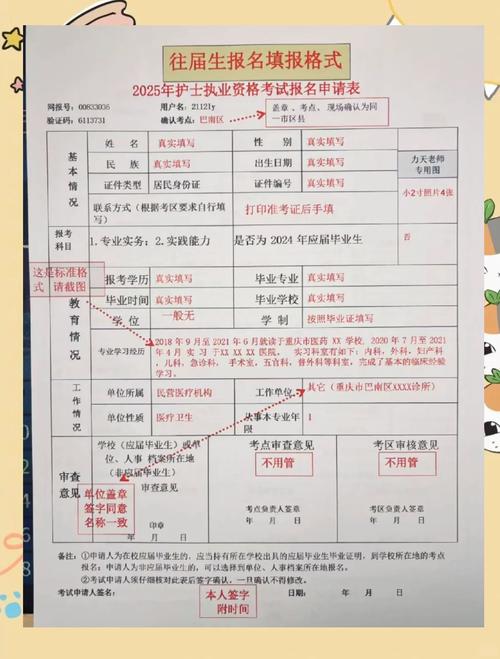 往届生报名填报格式
2025年护士执业资格考试报名申请表
网报号：00833036 用户名：21121y
验证码：6113731 确认考点：巴南区
盖章、考点、现场确认为同
一市区县
基本情况
姓 名 真实填写 性 别 真实填写
力天老师
专用图
民 族 真实填写 出生日期 真实填写
证件类型 居民身份证 证件编号 真实填写
小2寸照片4张
联系方式（根据考区要求自行填
写）
打印准考证后手填
报考
科目
1.专业实务；2.实践能力 是否为 2024 年应届毕业生 否
这是标准格
式 请截图
教育情况
报考学历 真实填写 毕业专业 真实填写
毕业时间 真实填写 毕业学校 真实填写
学 位 一般无 学 制 按照毕业证填写
专业学习经历
2018 年 9 月至 2021 年 6 月就读于重庆市医药 XX 学校，2020 年 7 月至 2021
年 4 月 实 习 于XX XX XX 医院， 实习科室有如下：内科，外科，妇产科
，儿科，急诊科， 手术室，五官科，普外科等科室，完成了基本的临床经验
学习。
工作情况
单位所属 民营医疗机构 工作单位 其它（重庆市巴南区XXXX诊所）
单位性质 医疗卫生 从事本专业年
限
1
审查
意见
学校（应届毕业生）或单
位、人事 档案所在地
（非应届毕业生）
审查意见
单位盖章
签字同意
名称一致
印章
年 月 日
考点审查意见
不用管
考点负责人签章
年 月 日
考区审核意见
不用管
考区负责人签章
年 月 日
备注：①申请人为在校应届毕业生的，应当持有所在学校出具的应届毕业生毕业证明，到学校所在地的考点
报名；申请人为非应届毕业生的，可以选择到单位、人事档案所在地报名。
②考试申请人须仔细核对此表后签字确认，一旦确认不得修改。
考试申请人签名： 日期： 年 月 日
本人签字
附时间